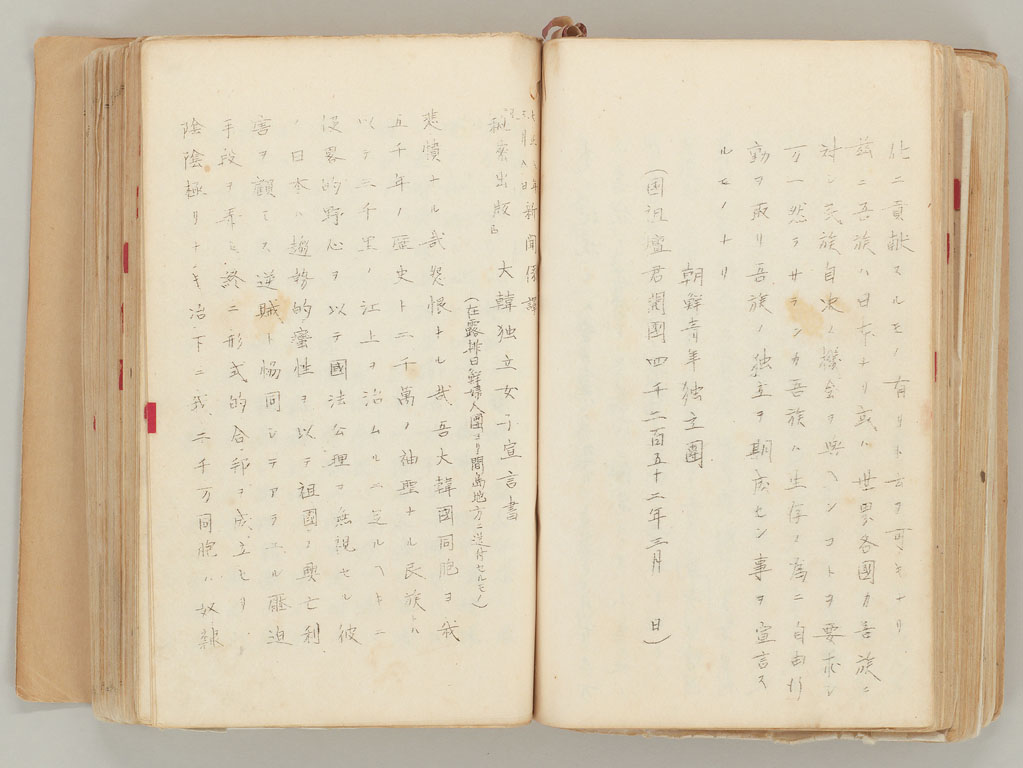 化ニ貢献スルモノ有リト云フ可キナリ
茲ニ吾族ハ日本ナリ或ハ世界各國カ吾族ニ
対シ民族自決ノ機会ヲ與ヘンコトヲ要求シ
万一然ラサランカ吾族ハ生存ノ為ニ自由行
動ヲ取リ吾族ノ独立ヲ期成セン事ヲ宣言ス
ルモノナリ
朝鮮青年独立團
(國祖壇君開國四千二百五十二年三月 日)
年新聞係譯
三月八日
大韓独立女子宣言書
(在露排日鮮婦人團ヨリ間島地方ニ送付セルモノ)
悲憤ナル哉怨恨ナル哉吾大韓國同胞ヨ我
五千年ノ歴史ト二千萬ノ神聖ナル民族トハ
以テ三千里ノ江上ヲ治ムルニ足ルヘキニ
侵畧的野心ヲ以テ國法公理ヲ無視セル彼
ノ日本ハ趨勢的蛮性ヲ以テ祖國ノ興亡利
害ヲ顧ミス逆賊ト恊同シテアラユル壓迫
手段ヲ弄シ終ニ形式的合邦ヲ成立セリ
陰陰極リナキ治下ニ我二千万同胞ハ奴隷